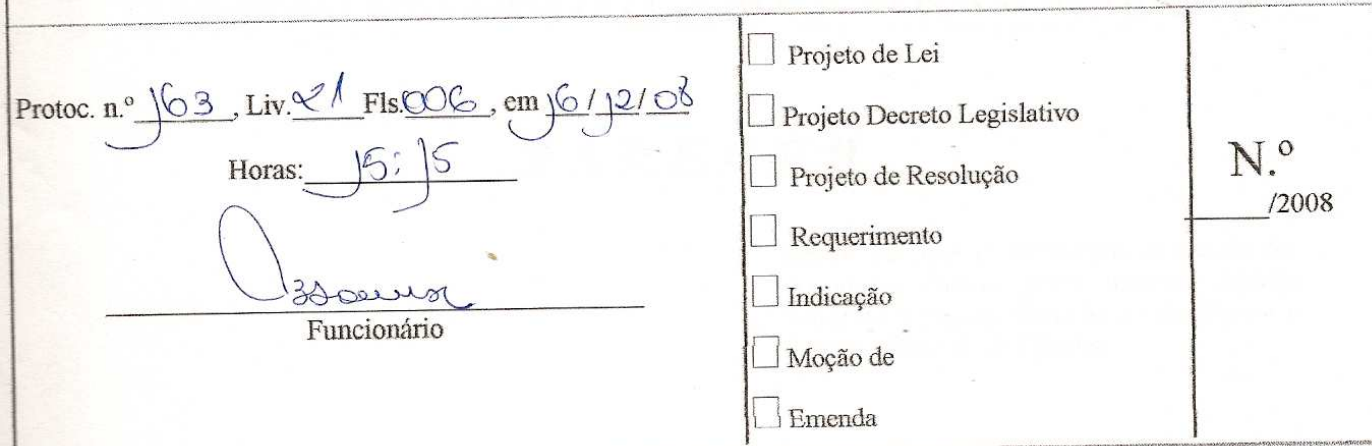 Protoc. n.º 163, Liv. 21 Fls. 006, em 16/12/08
Horas: 15:15
Funcionário
Projeto de Lei
Projeto Decreto Legislativo
Projeto de Resolução
Requerimento
Indicação
Moção de
Emenda
N.º
/2008